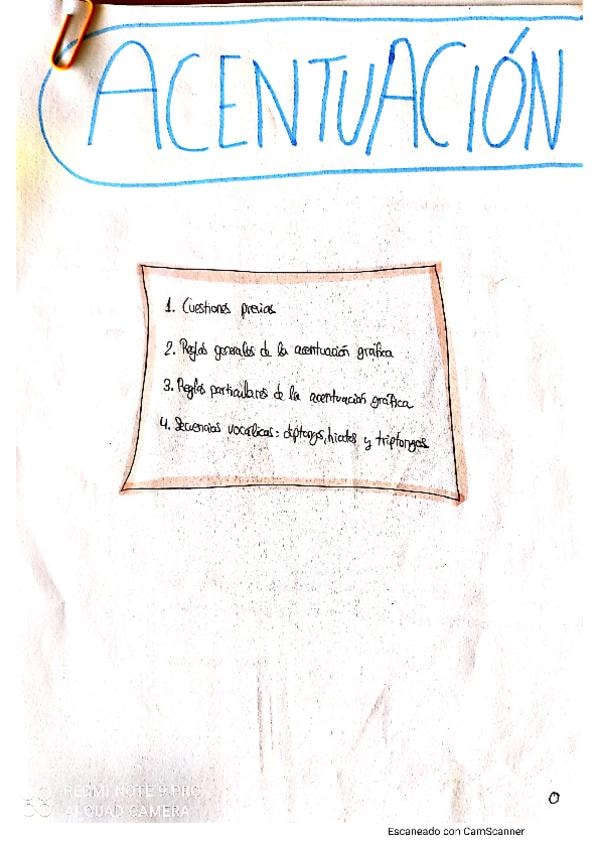 ACENTUACIÓN
1. Cuestiones previas
2. Reglas generales de la acentuación gráfica
3. Reglas particulares de la acentuación gráfica
4. Secuencias vocálicas: diptongs, hiatos y triptongos
REDMI NOTE 9 PRO
AI QUAD CAMERA
0
Escaneado con CamScanner